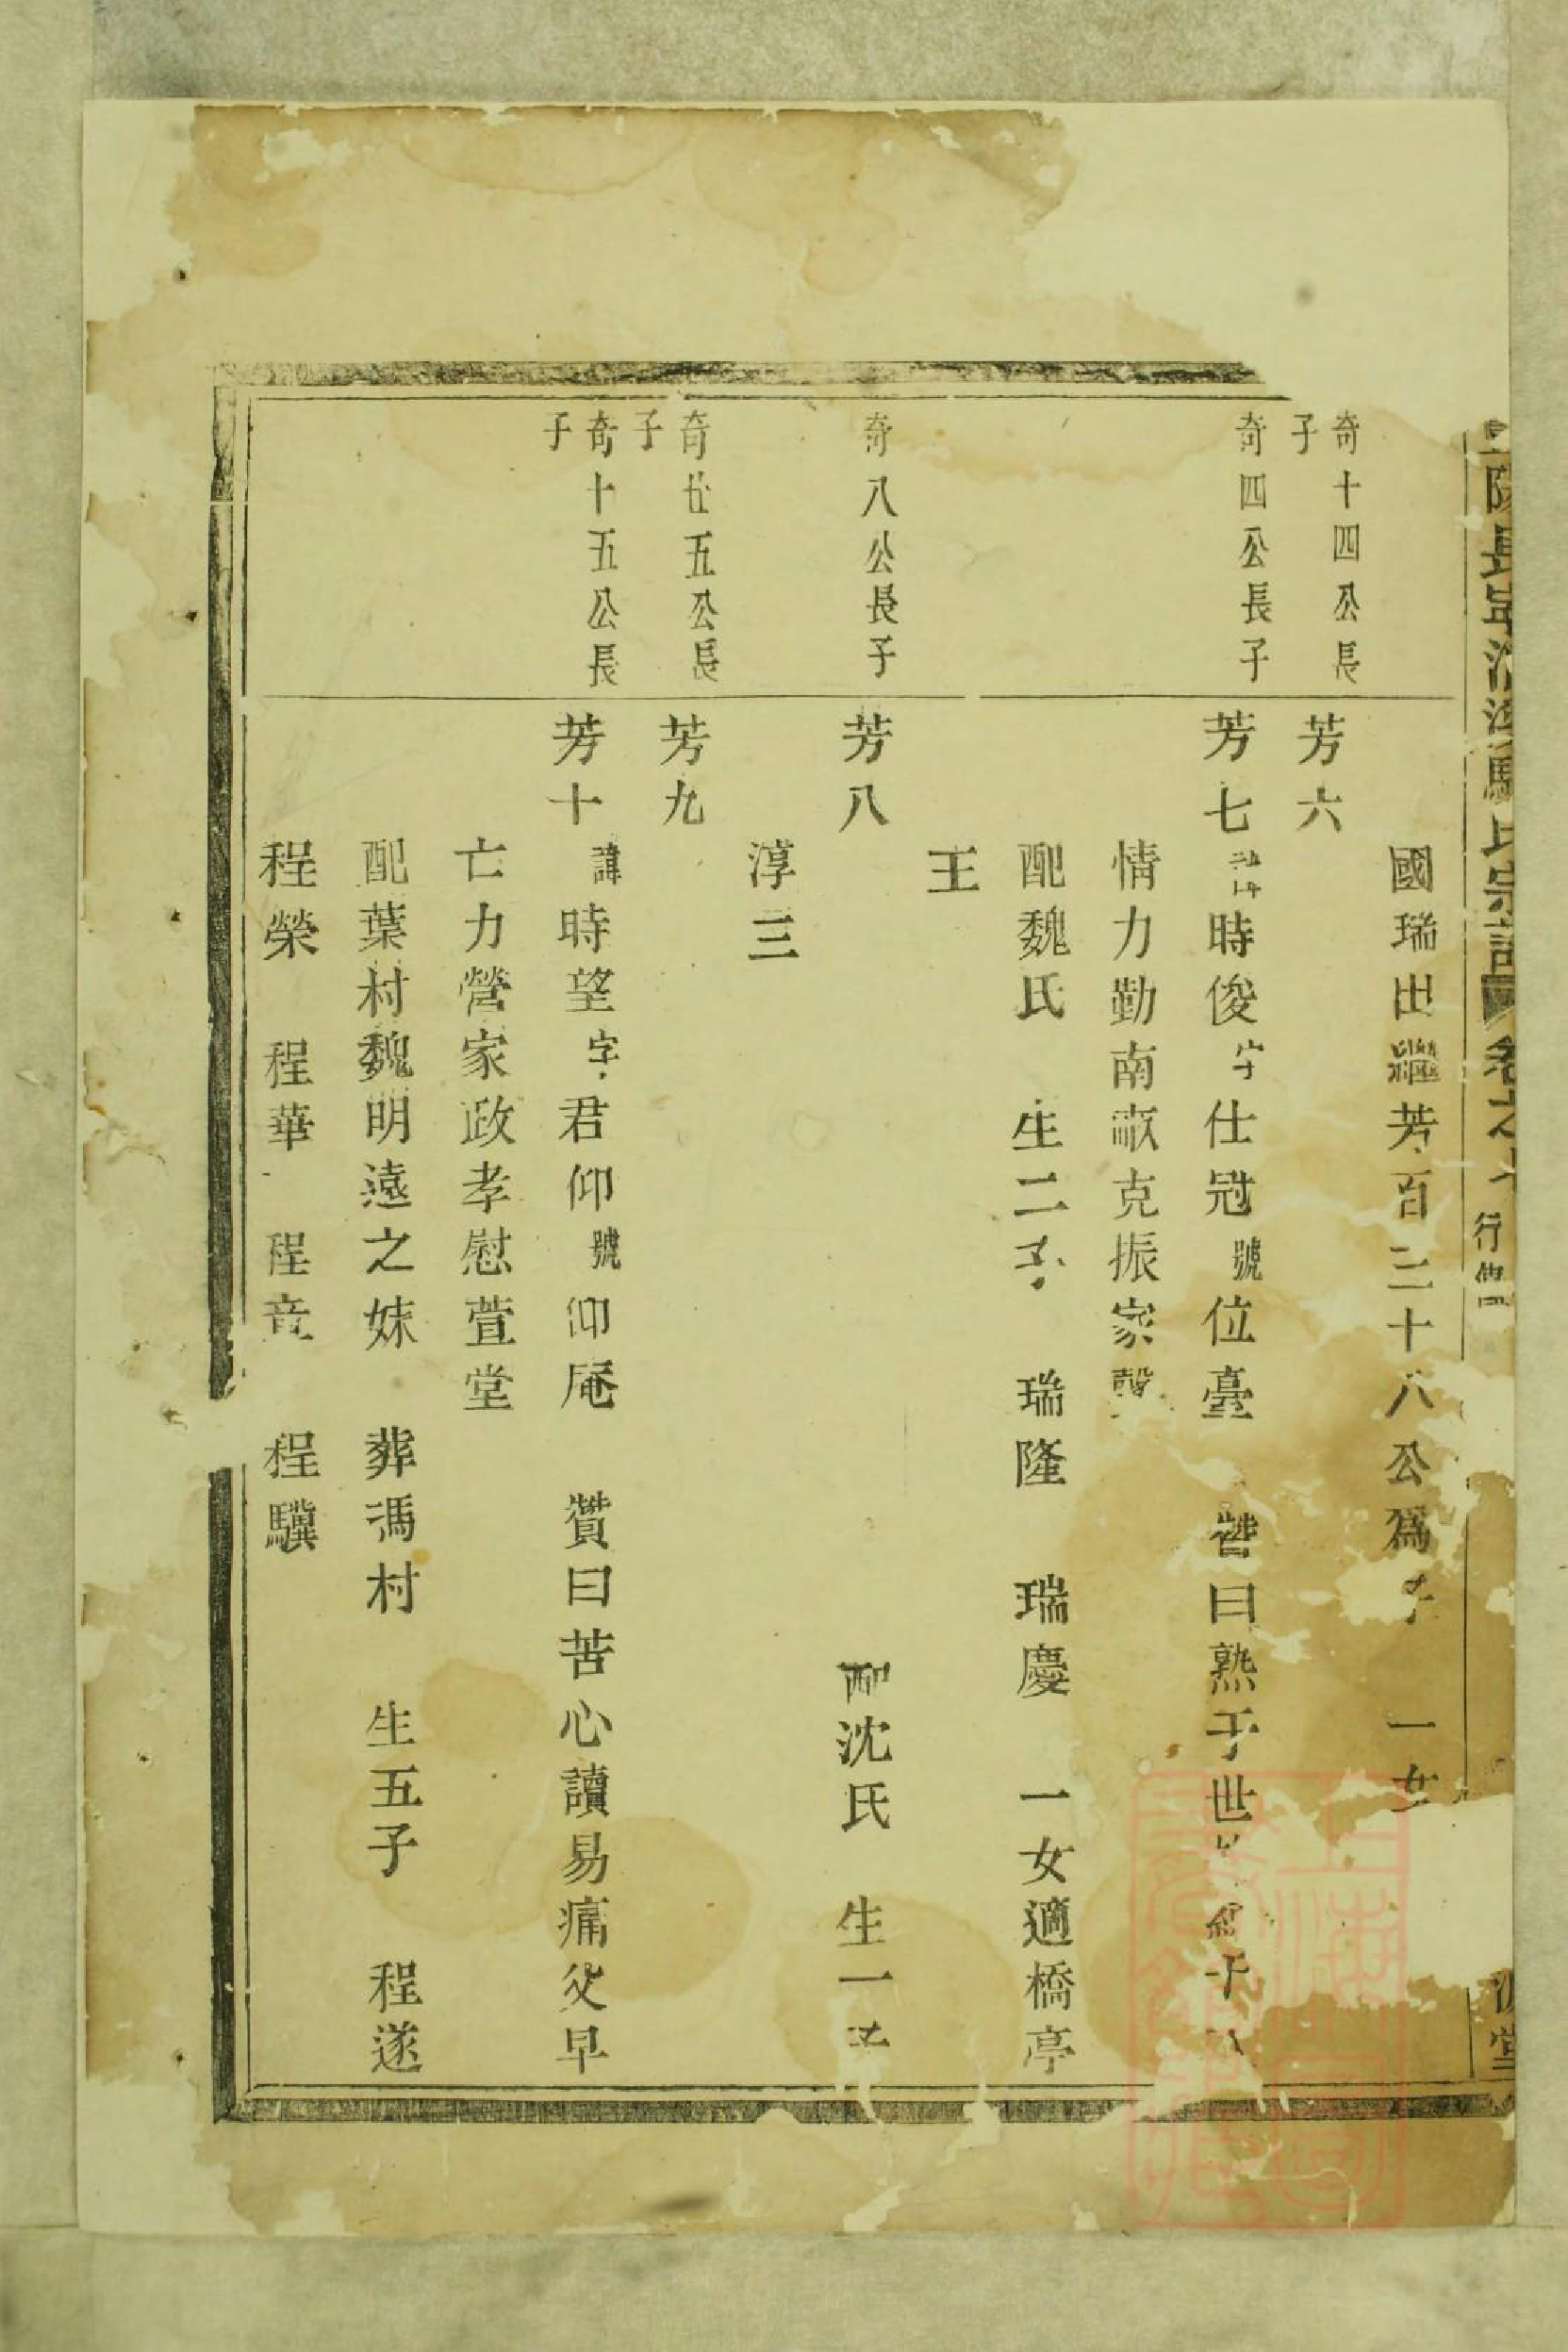 氏宗譜 卷之 行傳
堂
國瑞出繼芳百三十八公爲子 一女
奇十四公長
子
芳六
奇四公長子
芳七 時俊字仕冠號位臺 贊曰熟于世
情力勤南畝克振家聲
配魏氏 生二子 瑞隆 瑞慶 一女適橋亭
王
奇八公長子
芳八 配沈氏 生一子
淳三
奇廿五公長
子
芳九
奇十五公長
子
芳十 諱時望字君仰號仰庵 贊曰苦心讀易痛父早
亡力營家政孝慰萱堂
配葉村魏明遠之妹 葬馮村 生五子 程遂
程榮 程華 程章 程驥